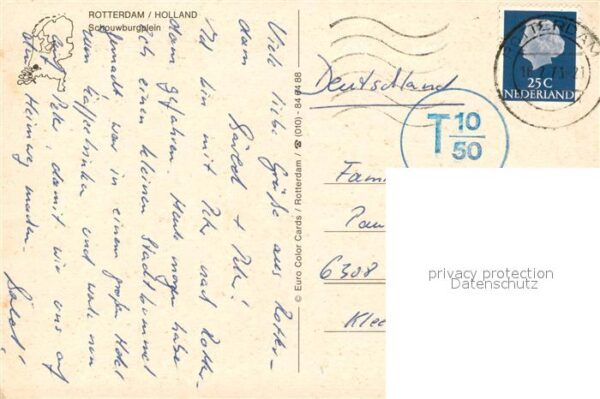 ROTTERDAM / HOLLAND
Schouwburgplein
Viele liebe Grüße aus Rotter-
dam
+ Peter!
Ich bin mit Peter nach Rotter-
dam gefahren. Heute morgen habe
ich einen kleinen Stadtbummel
gemacht, war in einem großen Hotel
zum Kaffeetrinken und warte nun
auf Peter, damit wir uns auf
den Heimweg machen.
© Euro Color Cards / Rotterdam / ☎ (010) - 84 84 88
Deutschland
T 10/50
25C
NEDERLAND
ROTTERDAM
Fam
Pau
6308
Klee
privacy protection
Datenschutz